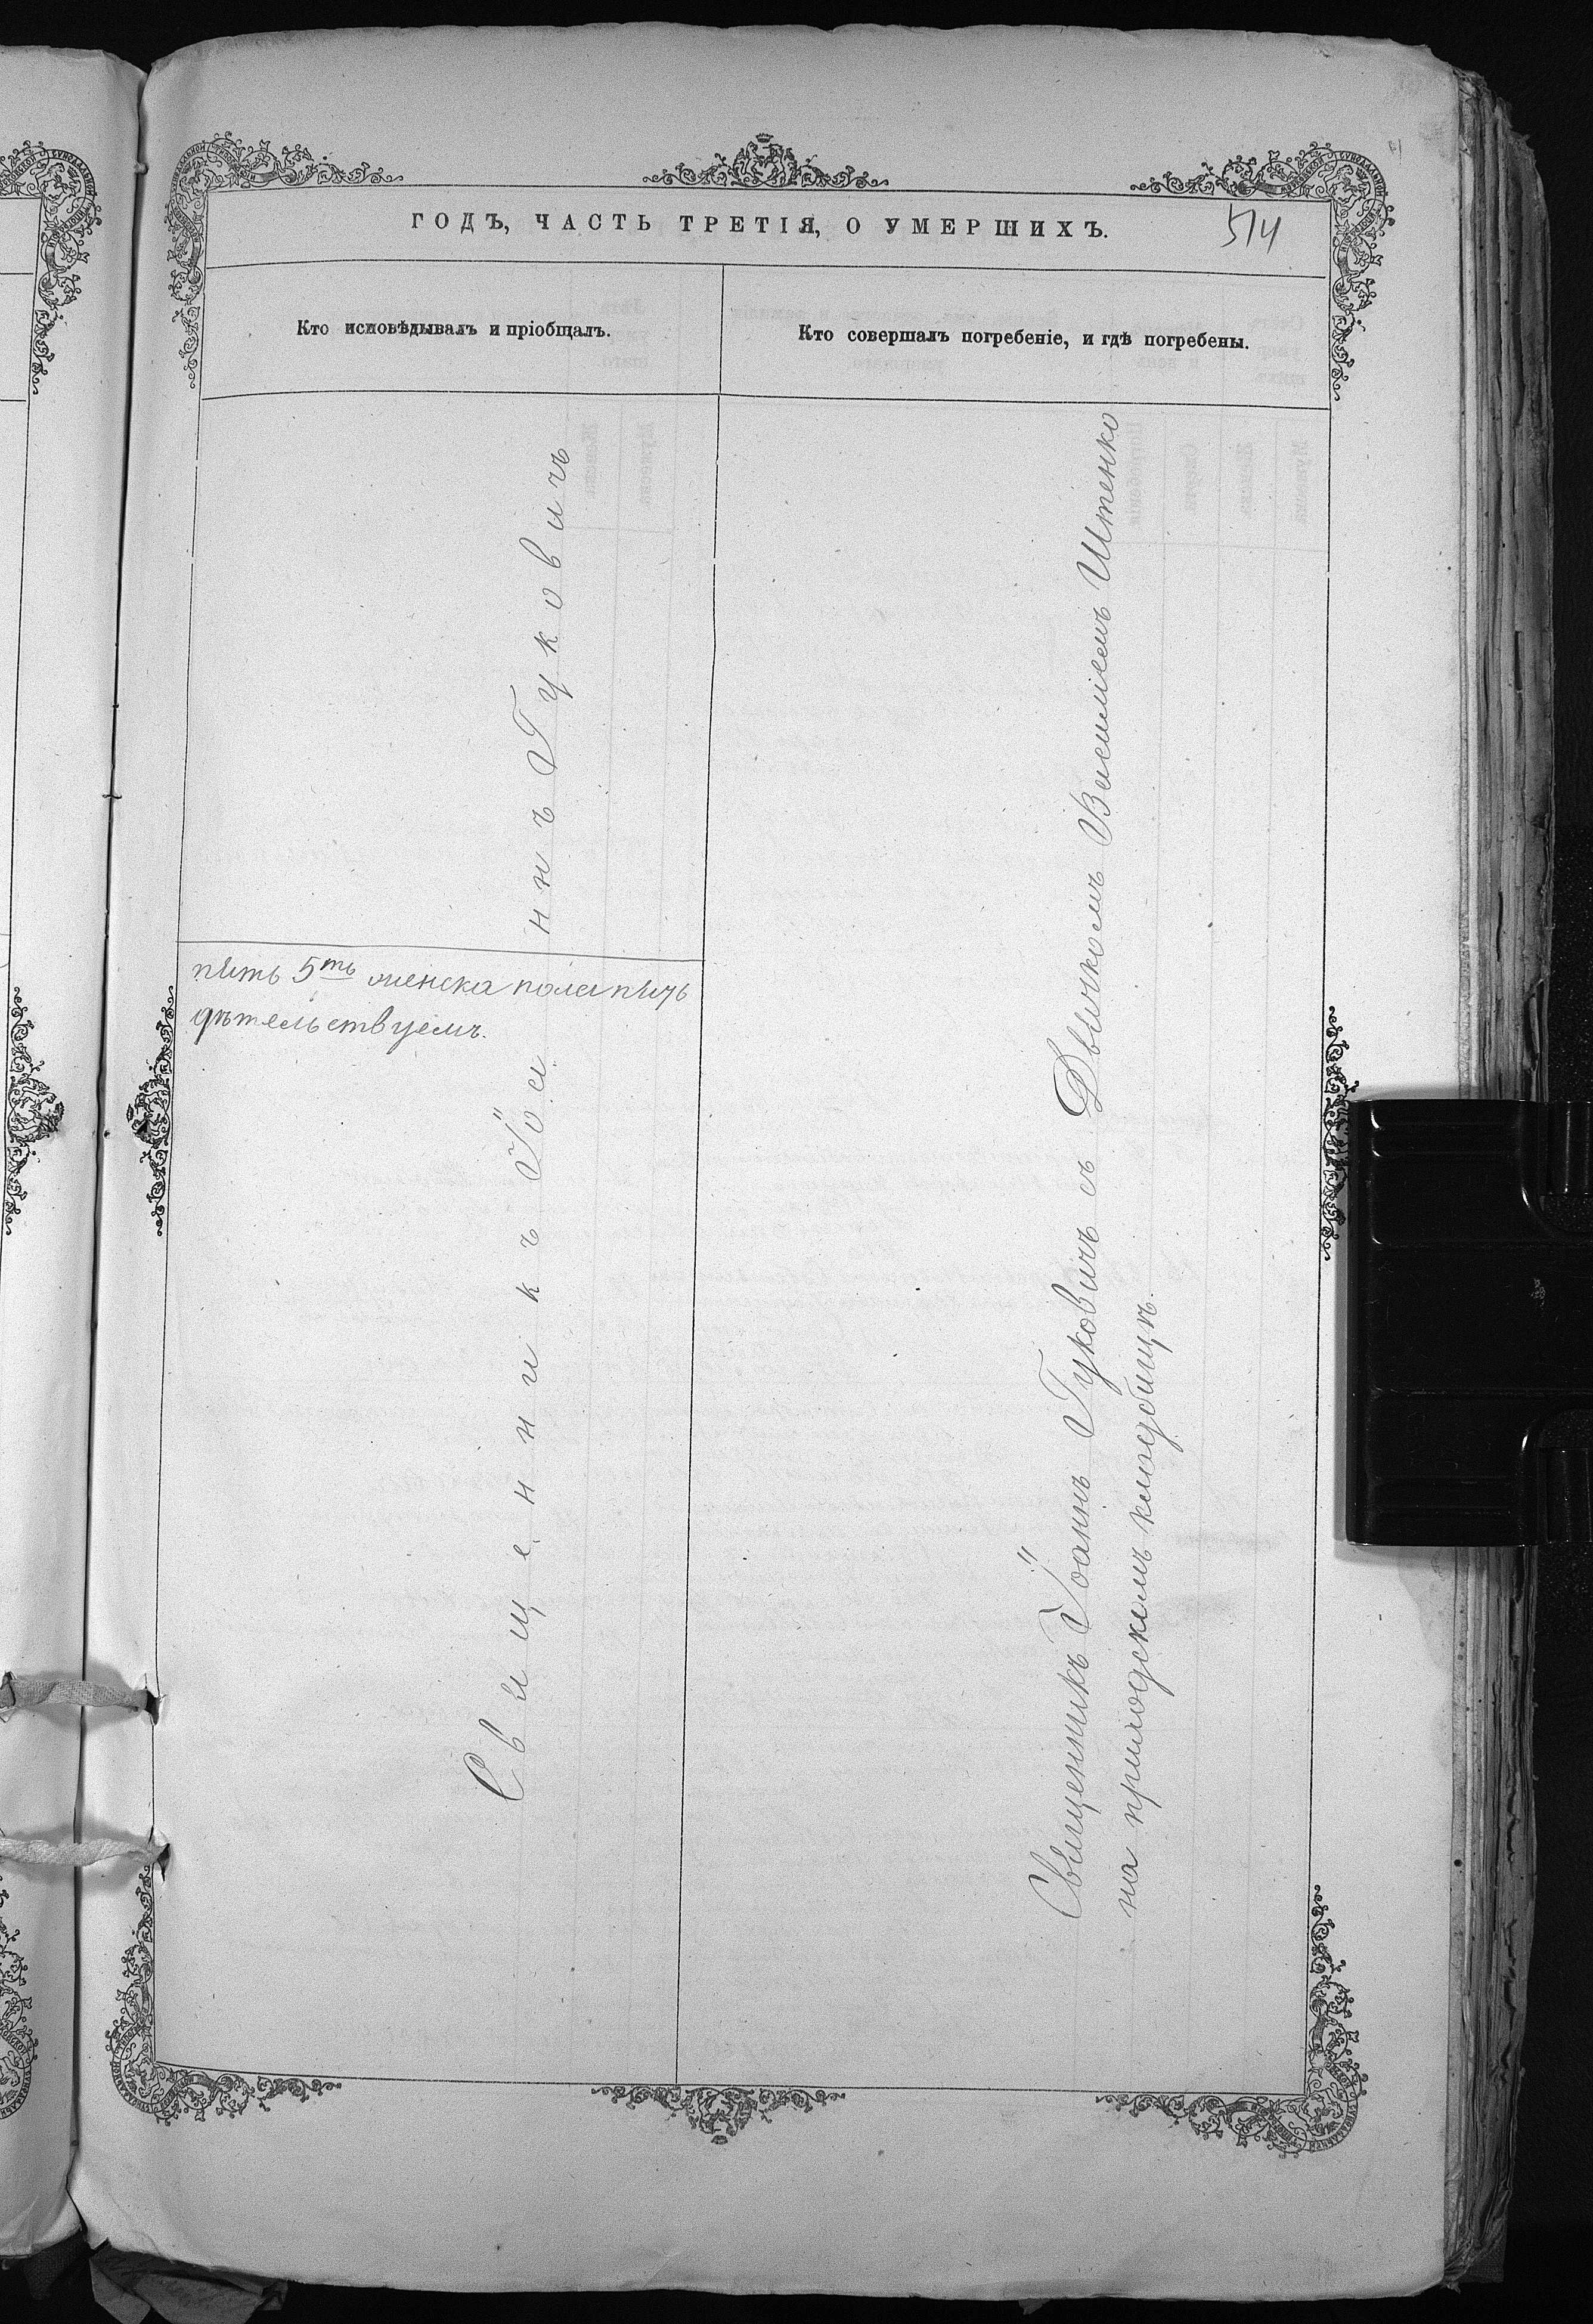 ГОДЪ, ЧАСТЬ ТРЕТІЯ, О УМЕРШИХЪ.
514
Кто исповѣдывалъ и пріобщалъ.
Кто совершалъ погребеніе, и гдѣ погребены.
Священникъ Іоаннъ Гуковичъ
пять 5ть женска пола пять
дѣтельствуемъ.
Священникъ Іоаннъ Гуковичъ съ Дьячкомъ Василіемъ Штенко
на приходскомъ кладбищѣ.